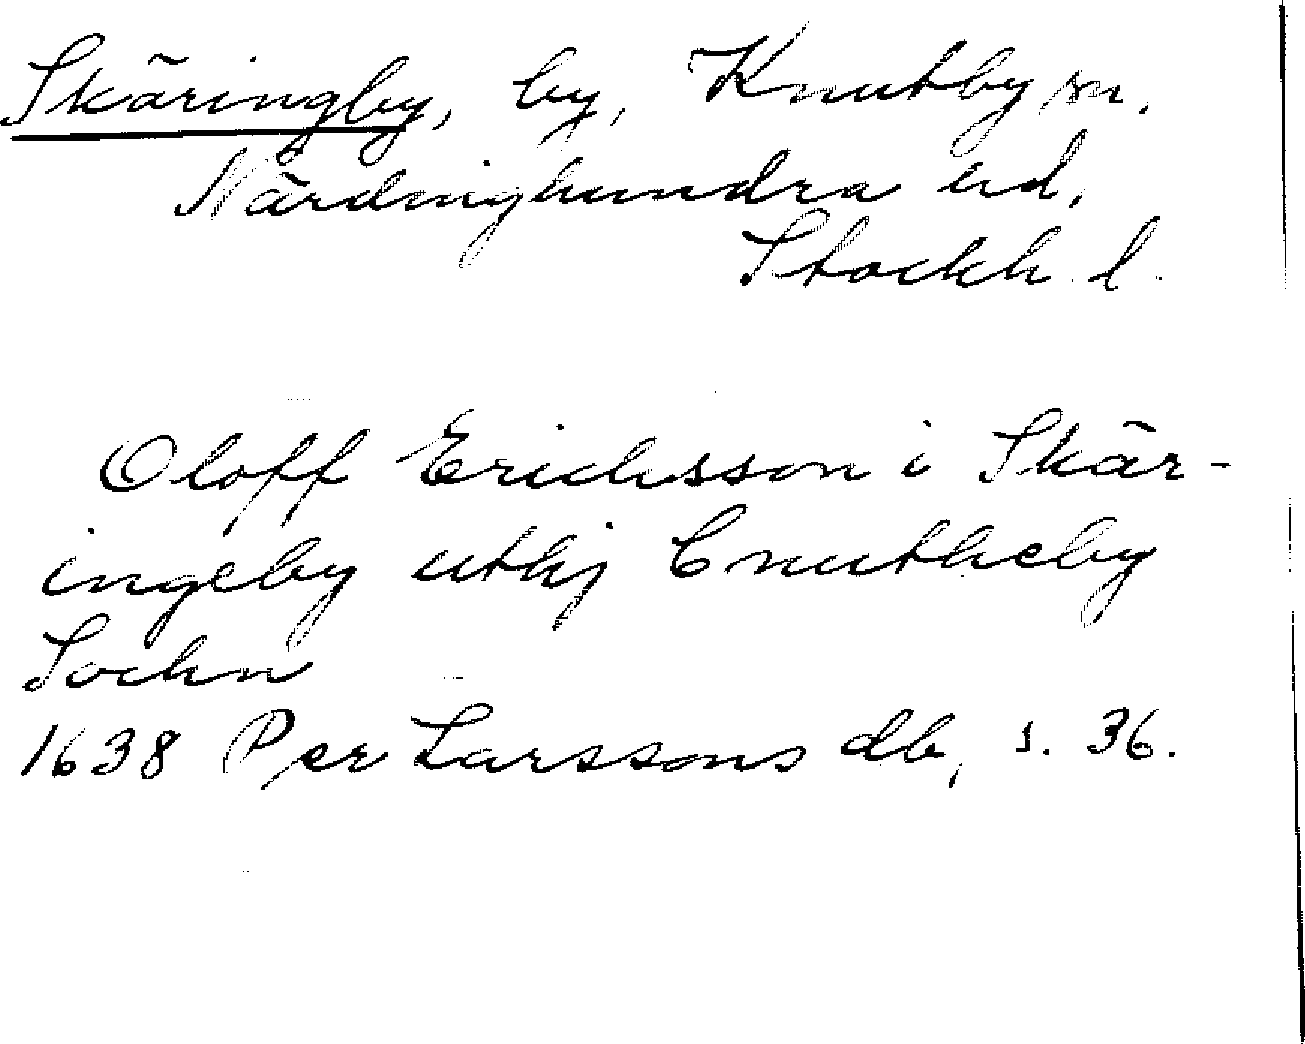 Skäringby, by, Knutby sn.
Närdinghundra hd.
Stockh. l.
Oloff Erichsson i Skär-
ingeby uthj Cnutheby
Sochn
1638 Per Larssons db, s. 36.